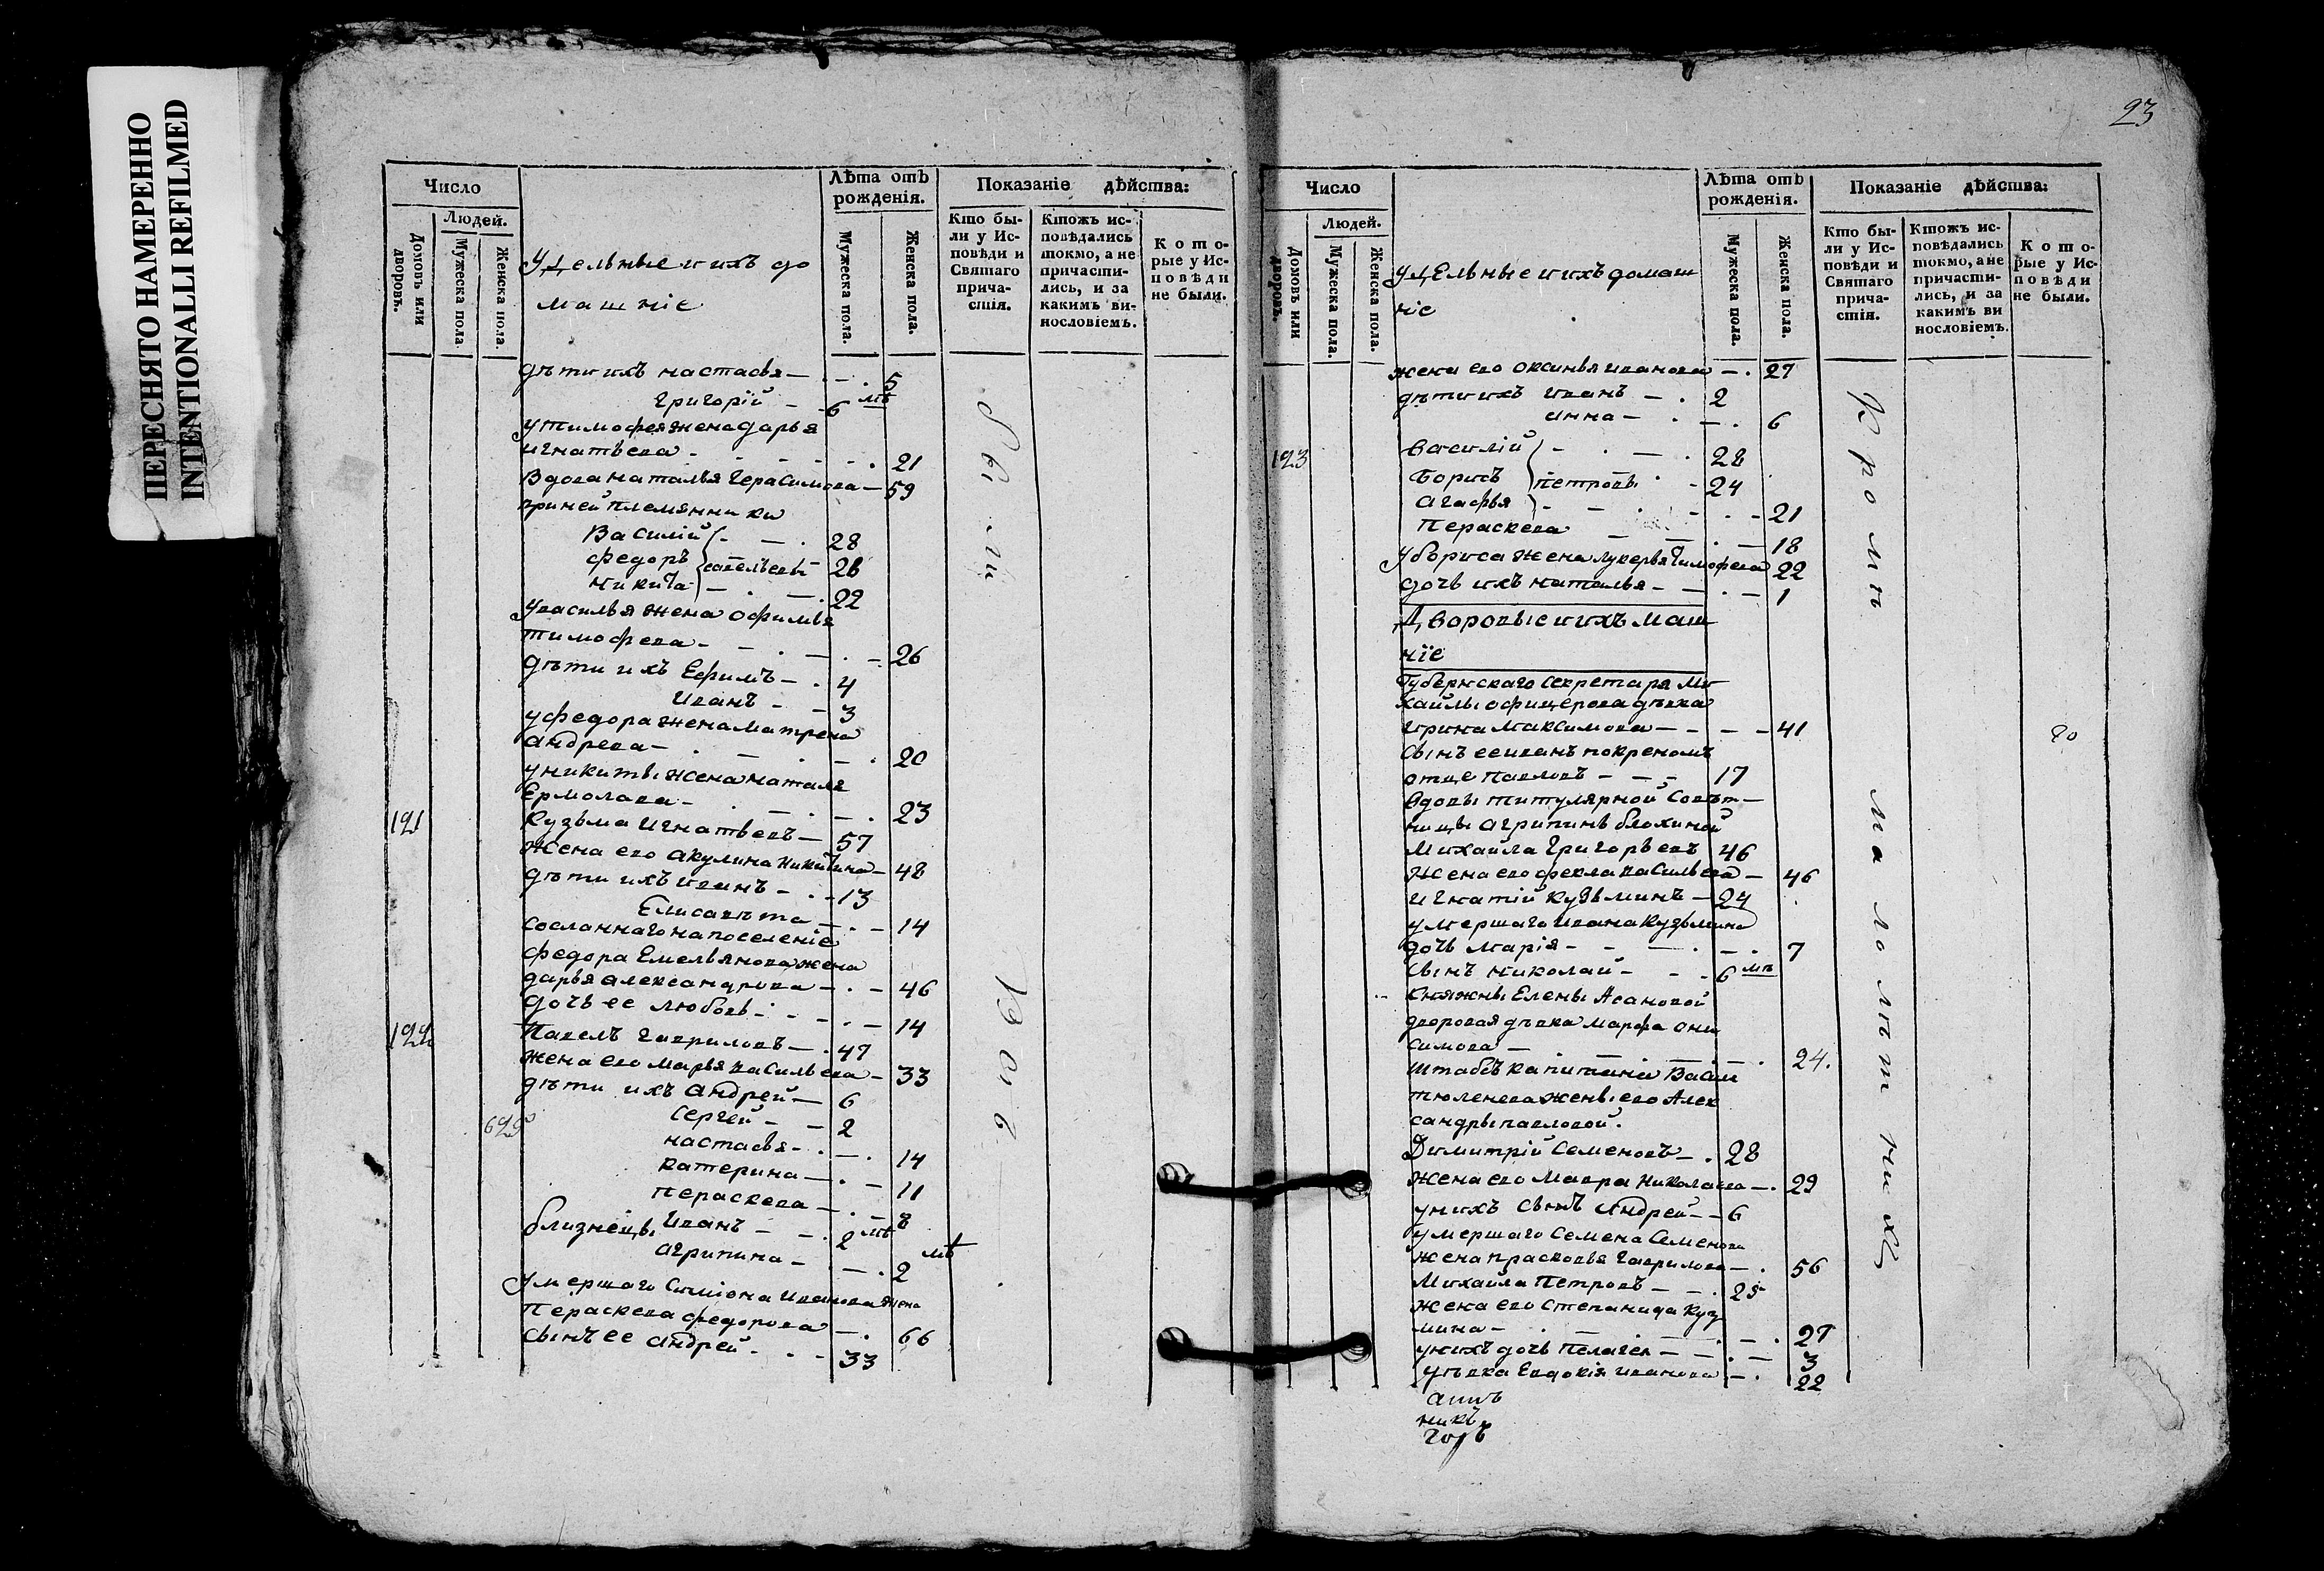 ПЕРЕСНЯТО НАМЕРЕННО
INTENTIONALLI REFILMED
Число
Людей.
Домовъ или дворовъ.
Мужеска пола.
Женска пола.
Удельные и ихъ до
машніе
Лѣта отъ рожденія.
Мужеска пола.
Женска пола.
Показаніе дѣйства:
Кто бы-
ли у Ис-
повѣди и
Святаго
прича-
стія.
Ктожъ ис-
повѣдались
токмо, а не
причасти-
лись, и за
какимъ ви-
нословіемъ.
Кото-
рые у Ис-
повѣди
не были.
дѣти ихъ настасья — 5
григорій — 6 мѣ
у тимофея жена дарья
игнатьева — 21
Вдова наталья Герасимова — 59
при ней племянники
Василій — 28
федоръ савельевы 26
никита — 22
у василья жена офимья
тимофева — 26
дѣти ихъ Ефимъ — 4
Иванъ — 3
у федора жена матрена
андрева — 20
у никиты жена наталя
Ермолава — 23
191 Кузьма Игнатьевъ — 57
жена его акулина никитина — 48
дѣти ихъ иванъ — 13
Елисавѣта — 14
сосланнаго на поселеніе
федора Емельянова жена
дарья александрова — 46
дочь ее любовь — 14
192 Павелъ гавриловъ — 47
жена его марья васильева — 33
дѣти ихъ андрей — 6
629 сергей — 2
настасья — 14
катерина — 11
пераскева — 8
близнецы Иванъ — 2 мѣ
агрипина — 2 мѣ
умершаго Симіона Иванова жена
Пераскева федорова — 66
сынъ ее андрей — 33
были
23
Число
Людей.
Домовъ или дворовъ.
Мужеска пола.
Женска пола.
удельные и ихъ домаш
ніе
Лѣта отъ рожденія.
Мужеска пола.
Женска пола.
Показаніе дѣйства:
Кто бы-
ли у Ис-
повѣди и
Святаго
прича-
стія.
Ктожъ ис-
повѣдались
токмо, а не
причасти-
лись, и за
какимъ ви
нословіемъ.
Кото-
рые у Ис-
повѣди
не были.
жена его оксинья иванова — 27
дѣти ихъ иванъ — 2
анна — 6
193 василій — 28
Борисъ петровы — 24
агафья — 21
Пераскева — 18
у бориса жена лукерья тимофева 22
дочь ихъ наталья — 1
Дворовые и ихъ маш
нїе
Губернскаго секретаря Ми
хайлы офицерова дѣвка
ирина максимова — 41
сынъ ее иванъ по креномъ
отце павловъ — 17
вдовы титулярной Совѣт—
ницы агрипины блохиной
михайла Григорьевъ 46
жена его фекла васильева — 46
игнатій кузьминъ — 24
умершаго ивана кузьмина
дочь марія — 7
сынъ николай — 6 мѣ
княжны Елены Асановой
дворовая дѣвка марфа они
симова — 24.
штабсъ капитана Васил
тюленева жены его Алек
сандры павловой.
Димитрій Семеновъ — 28
жена его мавра николаева — 29
у нихъ сынъ андрей — 6
умершаго семена семенова
жена прасковья гаврилова — 56
михайла Петровъ — 25
жена его степанида куз
мина — 27
у нихъ дочь пелагея — 3
дѣвка Евдокія иванова — 22
Кроме малолетнихъ
никъ